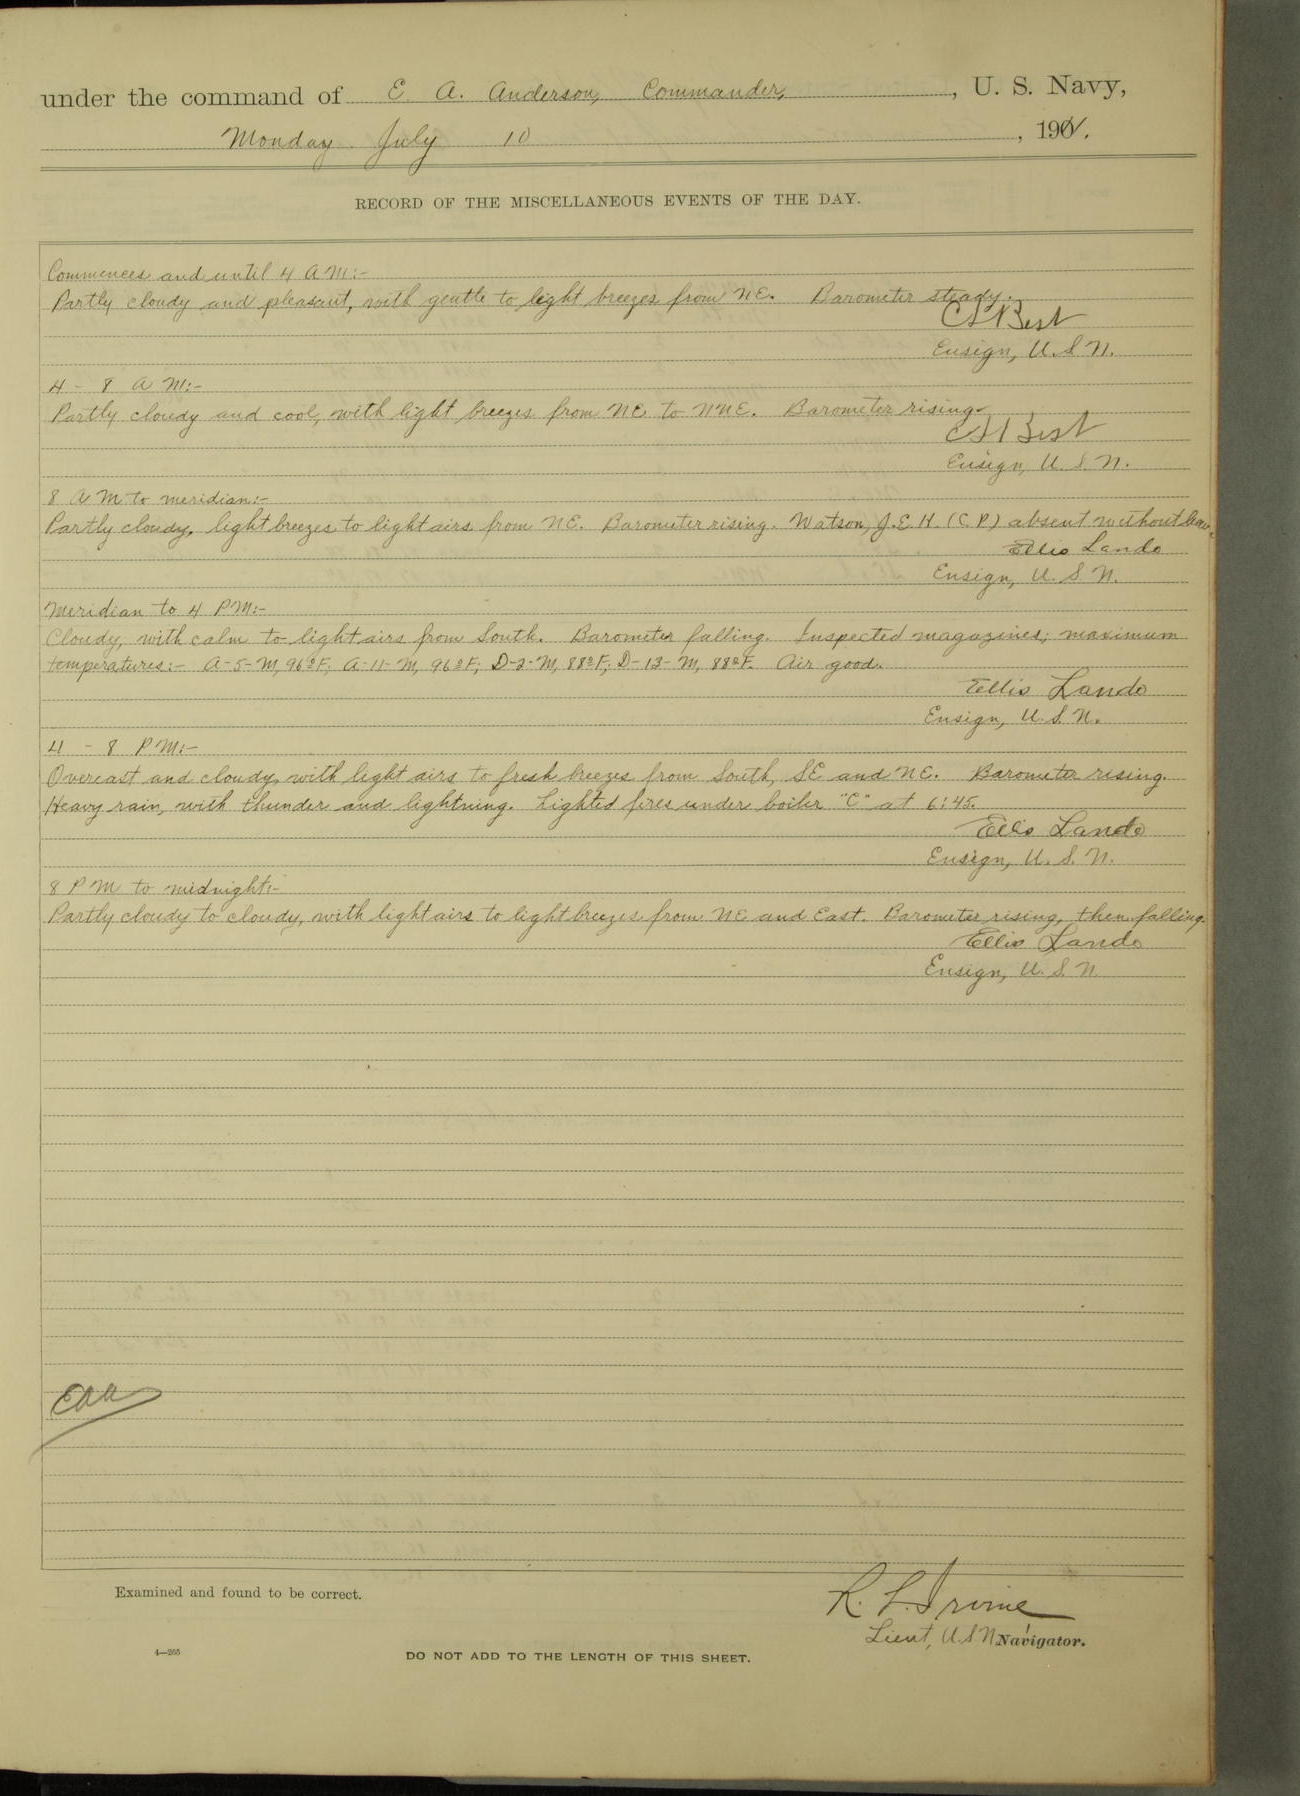 under the command of E. A. Anderson, Commander, , U. S. Navy,
Monday July 10 , 1901.
RECORD OF THE MISCELLANEOUS EVENTS OF THE DAY.
Commences and until 4 A M:-
Partly cloudy and pleasant, with gentle to light breezes from NE. Barometer steady.
C S Best
Ensign, U. S N.
4 - 8 A M:-
Partly cloudy and cool, with light breezes from NE to NNE. Barometer rising.
C S Best
Ensign, U. S. N.
8 A M to meridian:-
Partly cloudy, light breezes to light airs from NE. Barometer rising. Watson, J.E.H. (C.P.) absent without leave.
Ellis Lando
Ensign, U. S N.
Meridian to 4 PM:-
Cloudy, with calm to light airs from South. Barometer falling. Inspected magazines; maximum
temperatures:- A-5-M, 96°F; A-11-M, 96°F; D-2-M, 88°F; D-13-M, 88°F. Air good.
Ellis Lando
Ensign, U. S. N.
4 - 8 PM:-
Overcast and cloudy, with light airs to fresh breezes from South, SE and NE. Barometer rising.
Heavy rain, with thunder and lightning. Lighted fires under boiler "C" at 6:45.
Ellis Lando
Ensign, U. S. N.
8 P M to midnight:-
Partly cloudy to cloudy, with light airs to light breezes from NE and East. Barometer rising, then falling.
Ellis Lando
Ensign, U. S. N
EAA
Examined and found to be correct.
R. L. Irvine
Lieut, U.S.N. Navigator.
4—265
DO NOT ADD TO THE LENGTH OF THIS SHEET.